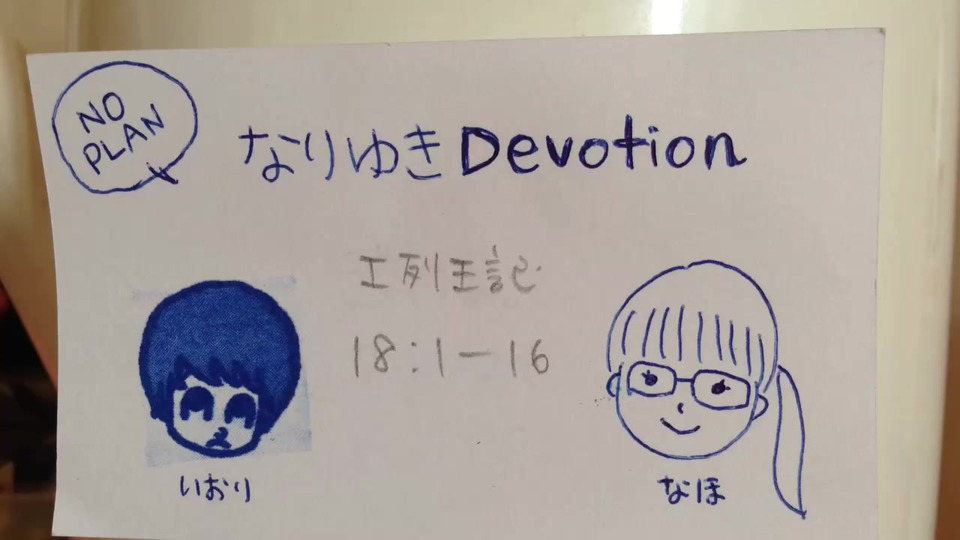 NO
PLAN
なりゆきDevotion
I列王記
18:1-16
いおり
なほ